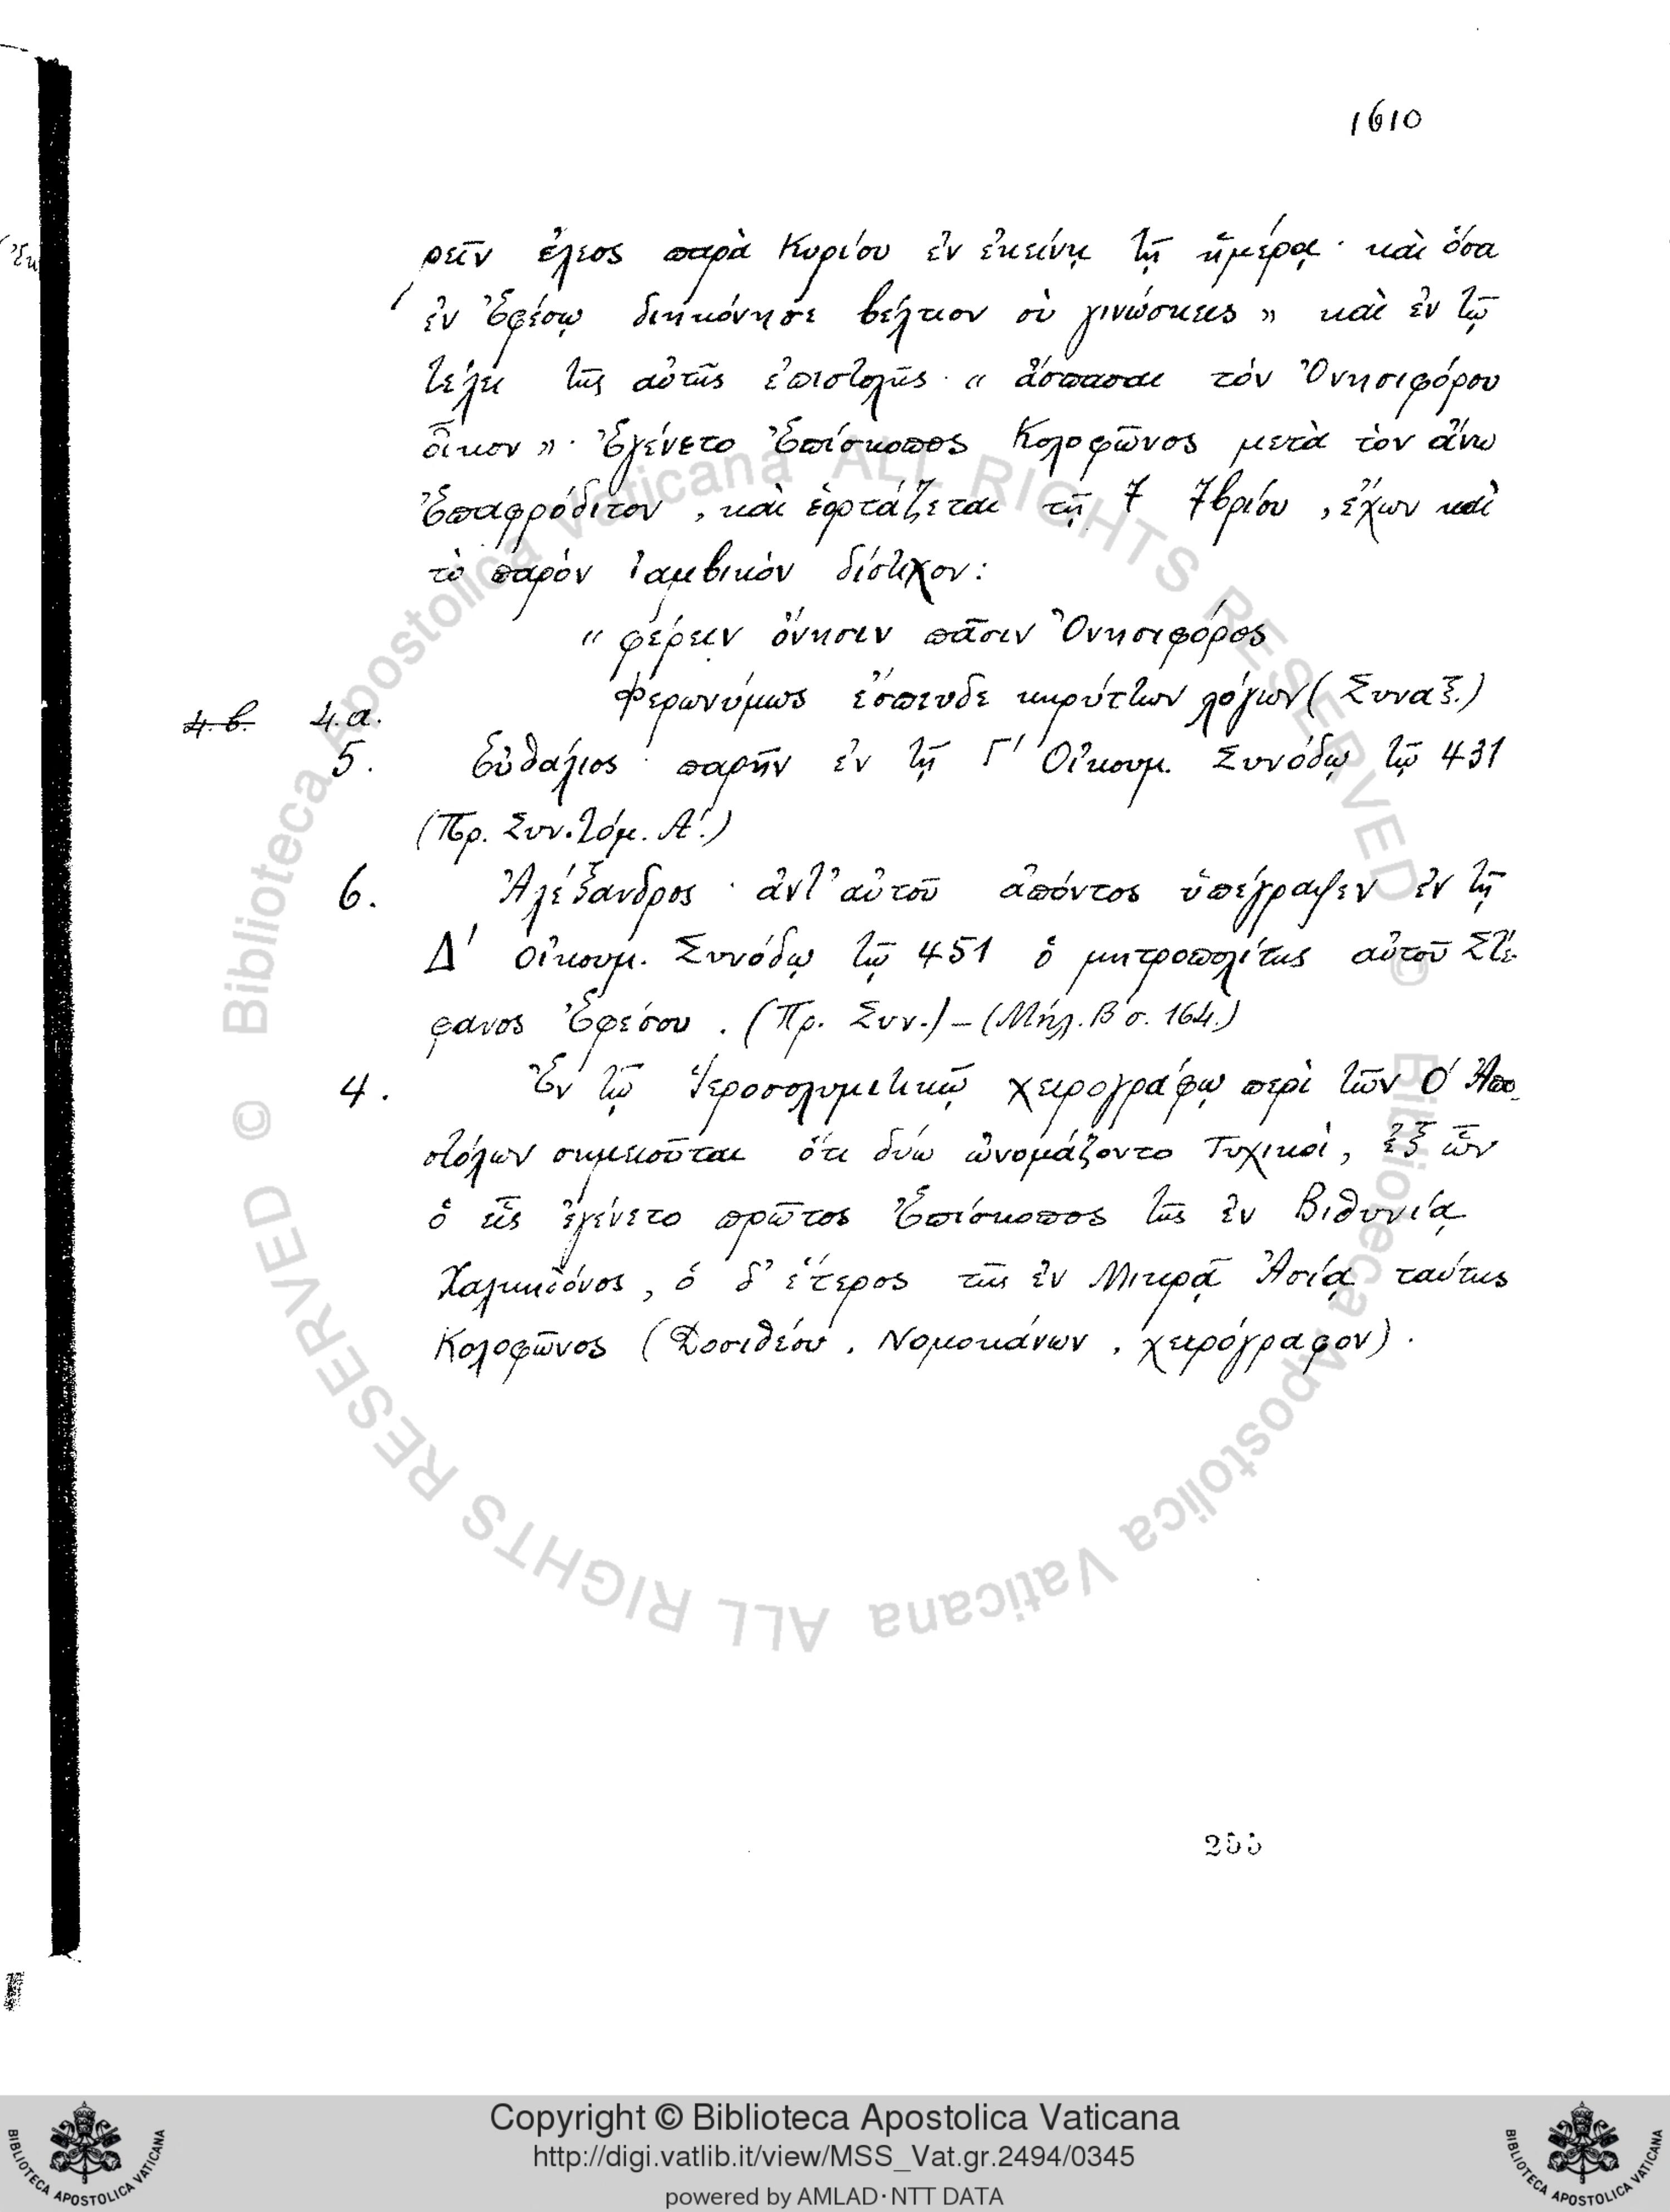 1610
ρεῖν ἔλεος παρὰ Κυρίου ἐν ἐκείνῃ τῇ ἡμέρᾳ· καὶ ὅσα
ἐν Ἐφέσῳ διηκόνησε βέλτιον σὺ γινώσκεις» καὶ ἐν τῷ
τέλει τῆς αὐτῆς ἐπιστολῆς· «ἄσπασαι τὸν Ὀνησιφόρου
οἶκον»· Ἐγένετο Ἐπίσκοπος Κολοφῶνος μετὰ τὸν ἄνω
Ἐπαφρόδιτον, καὶ ἑορτάζεται τῇ 7 7βρίου, ἔχων καὶ
τὸ παρὸν ἰαμβικὸν δίστιχον:
«φέρειν ὄνησιν πᾶσιν Ὀνησιφόρος
Φερωνύμως ἔσπευδε κηρύττων λόγων (Συναξ.)
4.β. 4.α.
5. Εὐθάλιος· παρῆν ἐν τῇ Γ' Οἰκουμ. Συνόδῳ τῷ 431
(Πρ. Συν. τόμ. Α'.)
6. Ἀλέξανδρος· ἀντ' αὐτοῦ ἀπόντος ὑπέγραψεν ἐν τῇ
Δ' Οἰκουμ. Συνόδῳ τῷ 451 ὁ μητροπολίτης αὐτοῦ Στέ-
φανος Ἐφέσου. (Πρ. Συν.) – (Μήλ. Β σ. 164.)
4. Ἐν τῷ Ἱεροσολυμιτικῷ χειρογράφῳ περὶ τῶν Ο' Ἀπο-
στόλων σημειοῦται ὅτι δύω ὠνομάζοντο Τυχικοὶ, ἐξ ὧν
ὁ εἷς ἐγένετο πρῶτος Ἐπίσκοπος τῆς ἐν Βιθυνίᾳ
Χαλκηδόνος, ὁ δ' ἕτερος τῆς ἐν Μικρᾷ Ἀσίᾳ ταύτης
Κολοφῶνος (Δοσιθέου, Νομοκάνων, χειρόγραφον).
255
© Biblioteca Apostolica Vaticana ALL RIGHTS RESERVED
© Biblioteca Apostolica Vaticana ALL RIGHTS RESERVED
Copyright © Biblioteca Apostolica Vaticana
http://digi.vatlib.it/view/MSS_Vat.gr.2494/0345
powered by AMLAD·NTT DATA
BIBLIOTECA APOSTOLICA VATICANA
BIBLIOTECA APOSTOLICA VATICANA